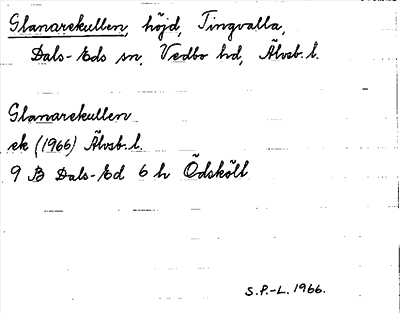 Glanarekullen, höjd, Tingvalla,
Dals-Eds sn, Vedbo hd, Älvsb. l.
Glanarekullen
ek (1966) Älvsb. l.
9 B Dals-Ed 6 h Ödskölt
S.P.-L. 1966.